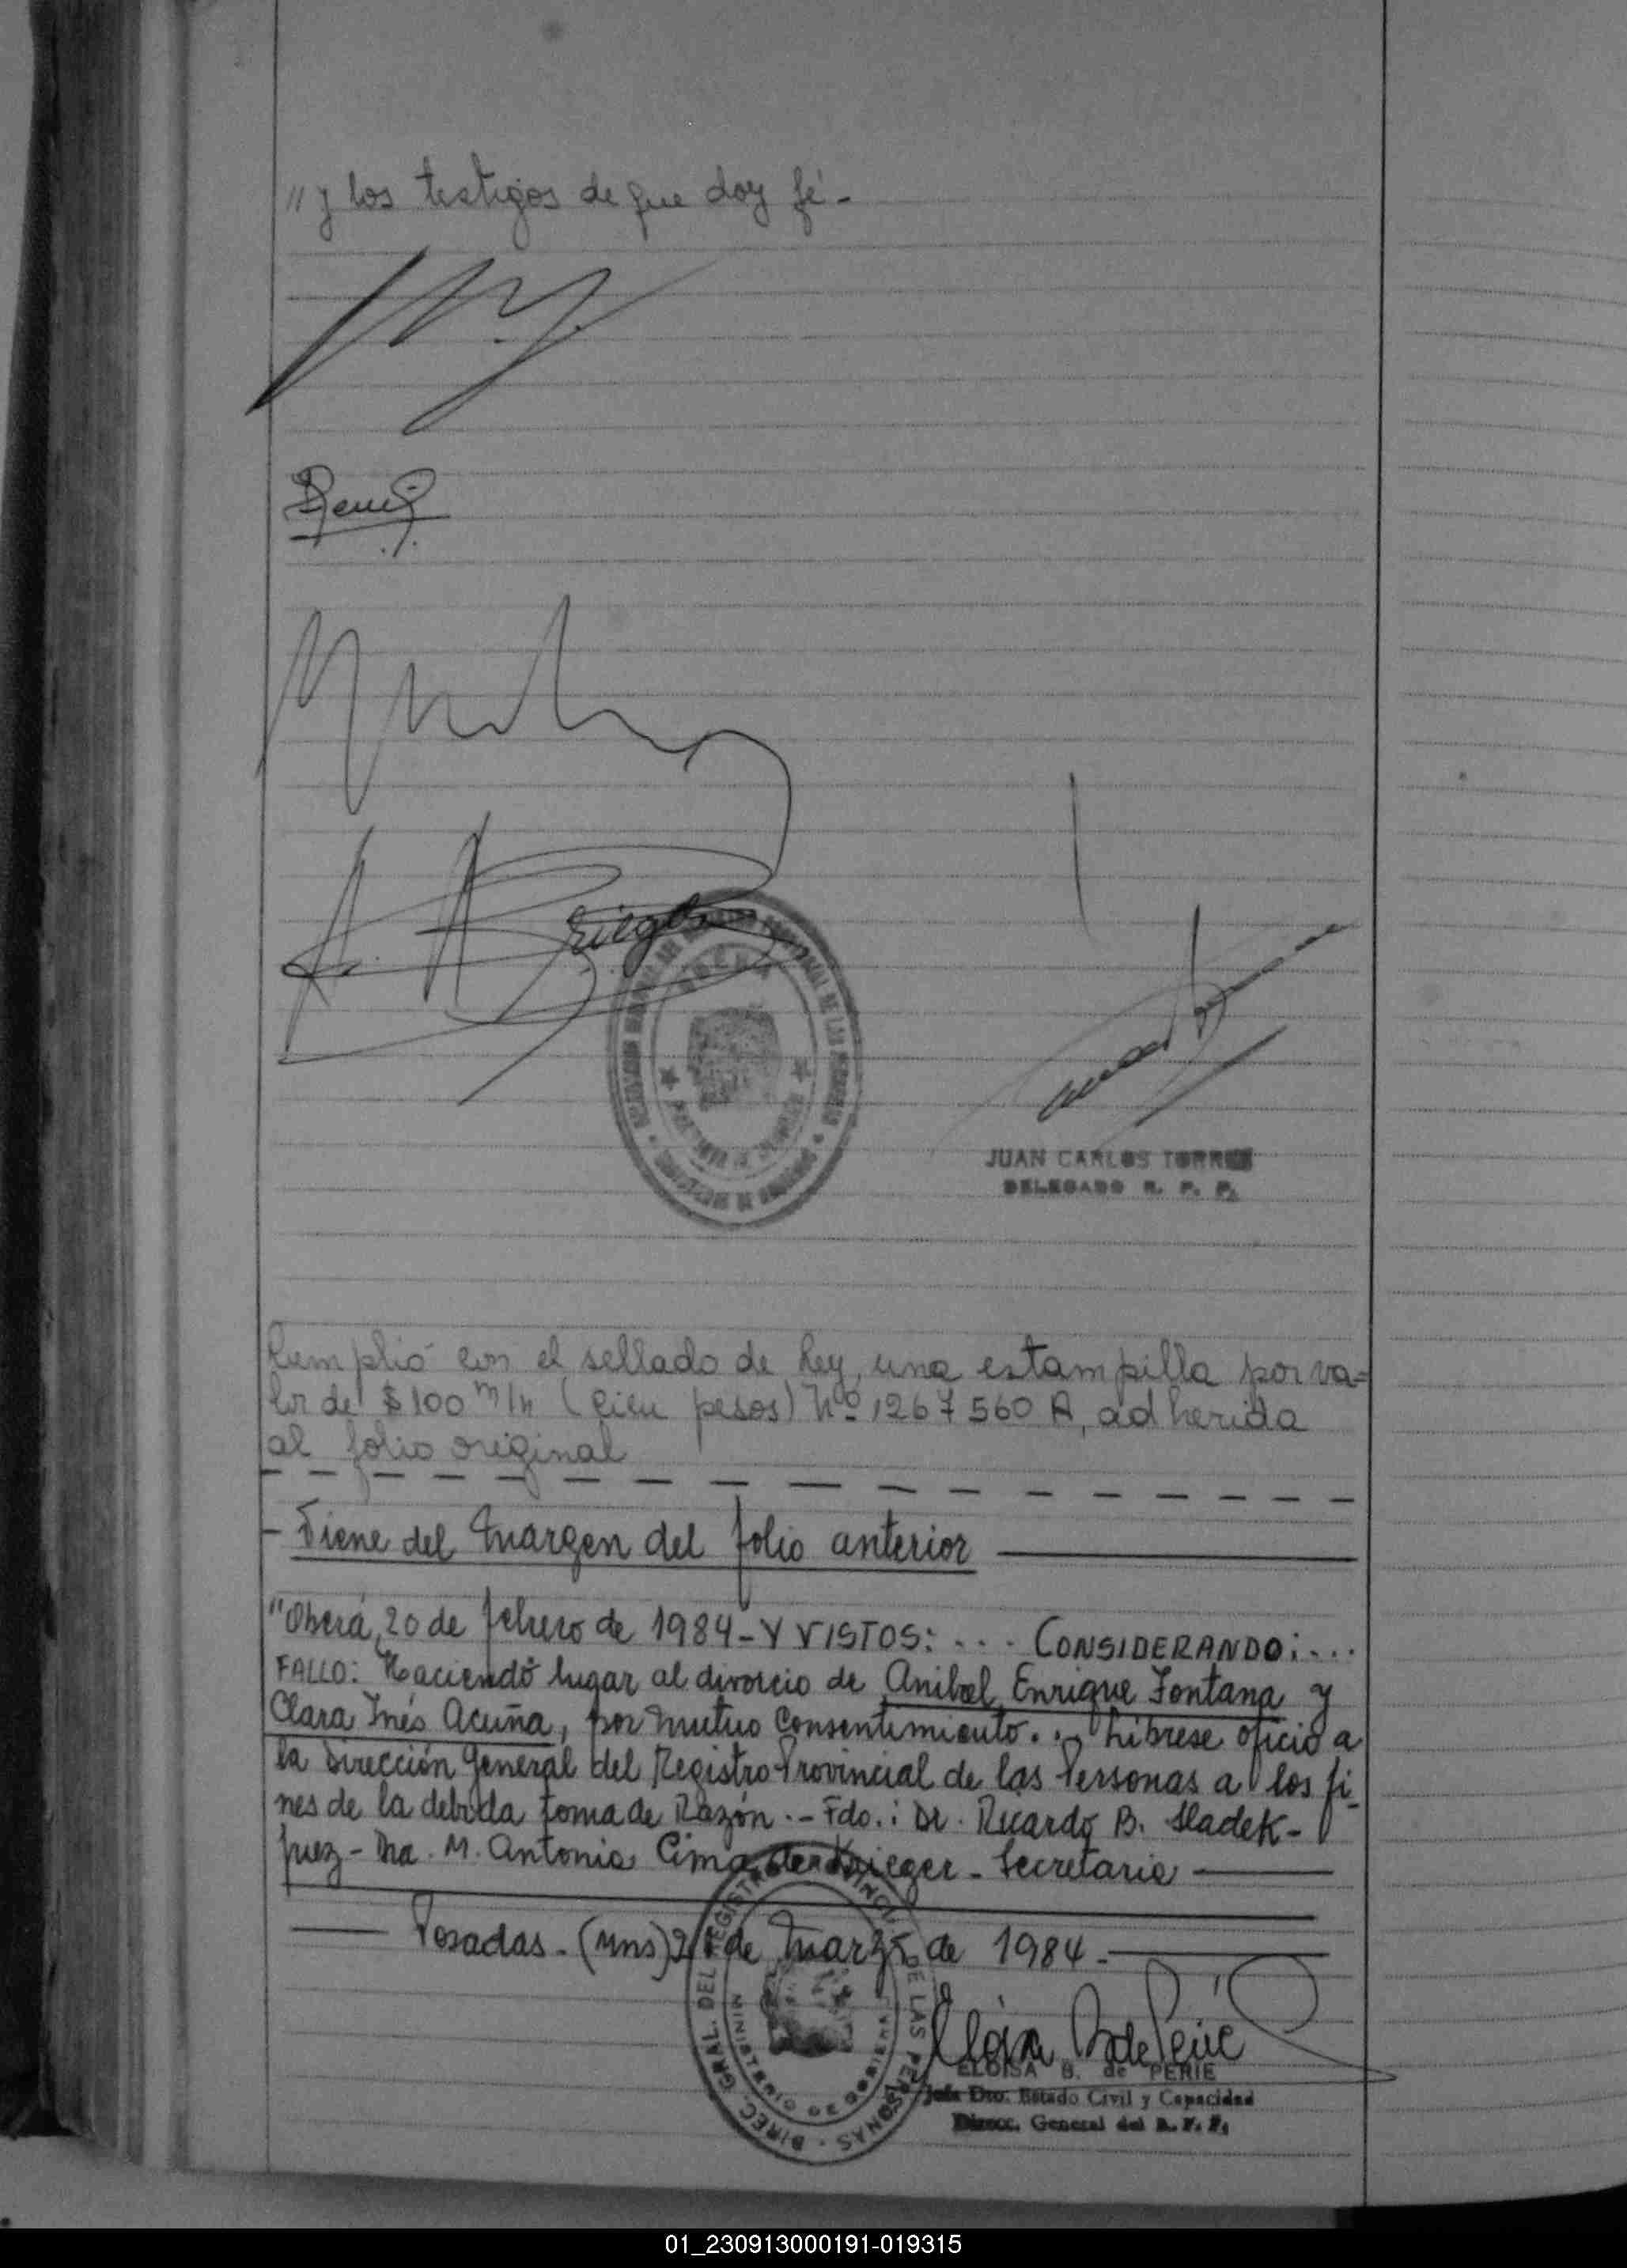 " y los testigos de que doy fé-
JUAN CARLOS TORRES
DELEGADO R. P. P.
Cumplió con el sellado de ley, una estampilla por va=
lor de $100 m/n (cien pesos) Nº 1267560 A, adherida
al folio original
- Viene del Margen del folio anterior
"Oberá, 20 de febrero de 1984- Y VISTOS: ... CONSIDERANDO: ...
FALLO: Haciendo lugar al divorcio de Anibal Enrique Fontana y
Clara Inés Acuña, por mutuo consentimiento... Líbrese oficio a
la Dirección General del Registro Provincial de las Personas a los fi-
nes de la debida toma de Razón.- Fdo.: Dr. Ricardo B. Sladek-
Juez- Dra. M. Antonia Cima de Krieger- Secretaria
Posadas- (Mns) de Marzo de 1984-
DIREC. GRAL. DEL REGISTRO PROVINCIAL DE LAS PERSONAS
ELOISA B. de PERIE
Jefa Dto. Estado Civil y Capacidad
Direcc. General del R. P. P.
01_230913000191-019315